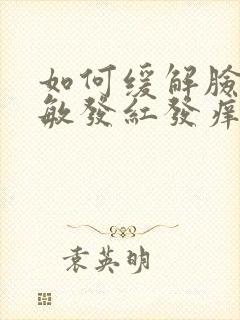 如何缓解脸
敏發紅發痒
袁英明